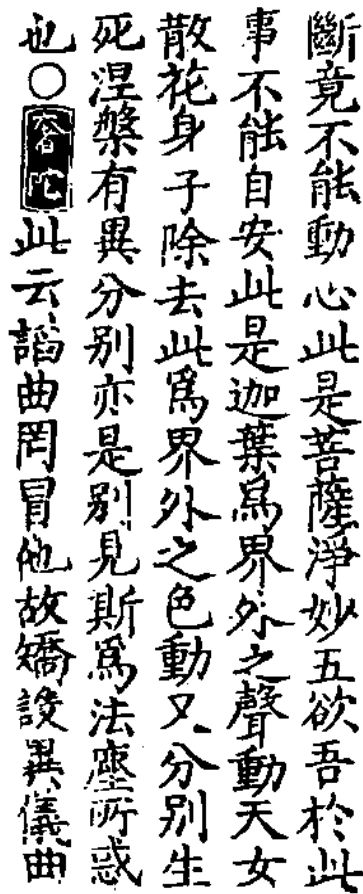 斷竟不能動心此是菩薩淨妙五欲吾於此
事不能自安此是迦葉爲界外之聲動天女
散花身子除去此爲界外之色動又分別生
死涅槃有異分別亦是別見斯爲法塵所惑
也○奢陀此云謟曲罔冒他故矯設異儀曲